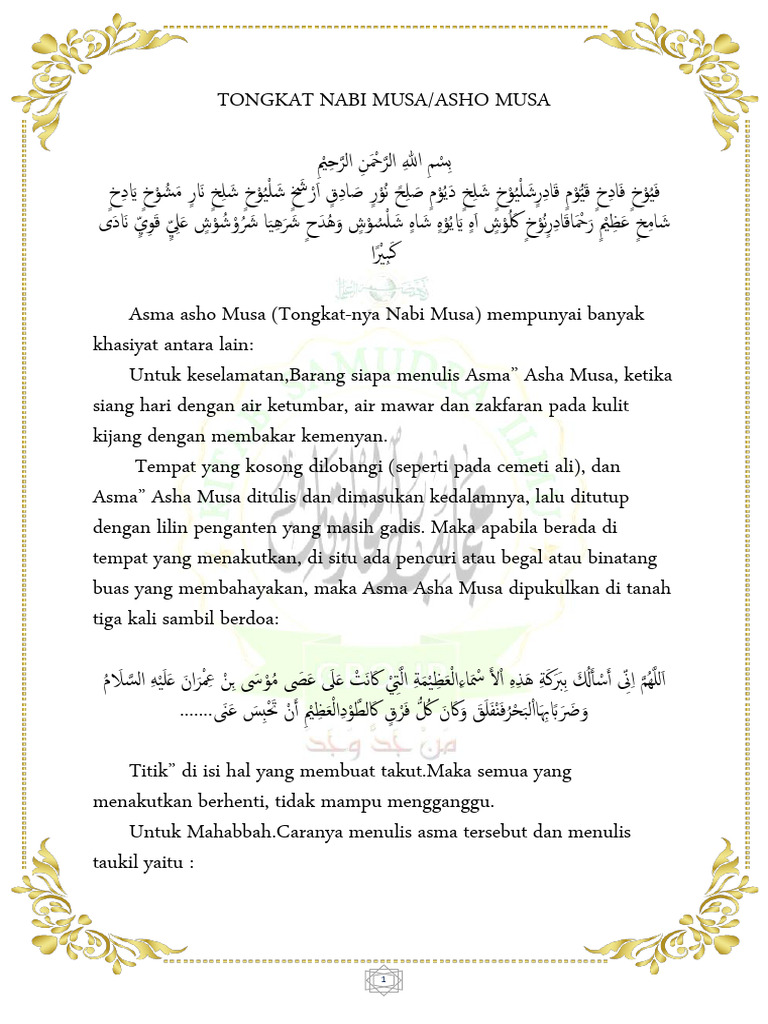 TONGKAT NABI MUSA/ASHO MUSA
بِسْمِ اللهِ الرَّحْمَنِ الرَّحِيْمِ
فَيُوْخٍ فَادِخٍ قَيُّوْمٍ قَادِرٍشَلْيُوْخٍ شَلِخٍ دَيُوْمٍ صَلِحٍ نُوْرٍ صَادِقٍ اَرْشَخٍ شَلْيُوْخٍ شَلِخٍ نَارٍ مَشُوْخٍ يَادِخٍ
شَامِخٍ عَظِيْمٍ رَحْمَاقَادِرٍنُوْخٍ كَلُوْشٍ اَهٍ يَايُوْهٍ شَاهٍ شَلْسُوْشٍ وَهُدَحٍ شَرَهِيَا شَرُوْشُوْشٍ عَلِيٍّ قَوِيٍّ نَادَى
كَبِيْرًا
Asma asho Musa (Tongkat-nya Nabi Musa) mempunyai banyak
khasiyat antara lain:
Untuk keselamatan,Barang siapa menulis Asma” Asha Musa, ketika
siang hari dengan air ketumbar, air mawar dan zakfaran pada kulit
kijang dengan membakar kemenyan.
Tempat yang kosong dilobangi (seperti pada cemeti ali), dan
Asma” Asha Musa ditulis dan dimasukan kedalamnya, lalu ditutup
dengan lilin penganten yang masih gadis. Maka apabila berada di
tempat yang menakutkan, di situ ada pencuri atau begal atau binatang
buas yang membahayakan, maka Asma Asha Musa dipukulkan di tanah
tiga kali sambil berdoa:
اَللَّهُمَّ اِنِّى أَسْأَلُكَ بِبَرَكَةِ هَذِهِ اْلأَ سْمَاءِالْعَظِيْمَةِ الَّتِيْ كَانَتْ عَلَى عَصَى مُوْسَى بِنْ عِمْرَانَ عَلَيْهِ السَّلَامُ
وَضَرَبَابِهَااْلبَحْرُفَنْفَلَقَ وَكَانَ كُلُّ فَرْقٍ كَالطَّوْدِالْعَظِيْمِ أَنْ تَحْبِسَ عَنَى.......
مَنْ جَدَّ وَجَدَ
Titik” di isi hal yang membuat takut.Maka semua yang
menakutkan berhenti, tidak mampu mengganggu.
Untuk Mahabbah.Caranya menulis asma tersebut dan menulis
taukil yaitu :
KITAB SAMUDRA ILMU
GROUP
1